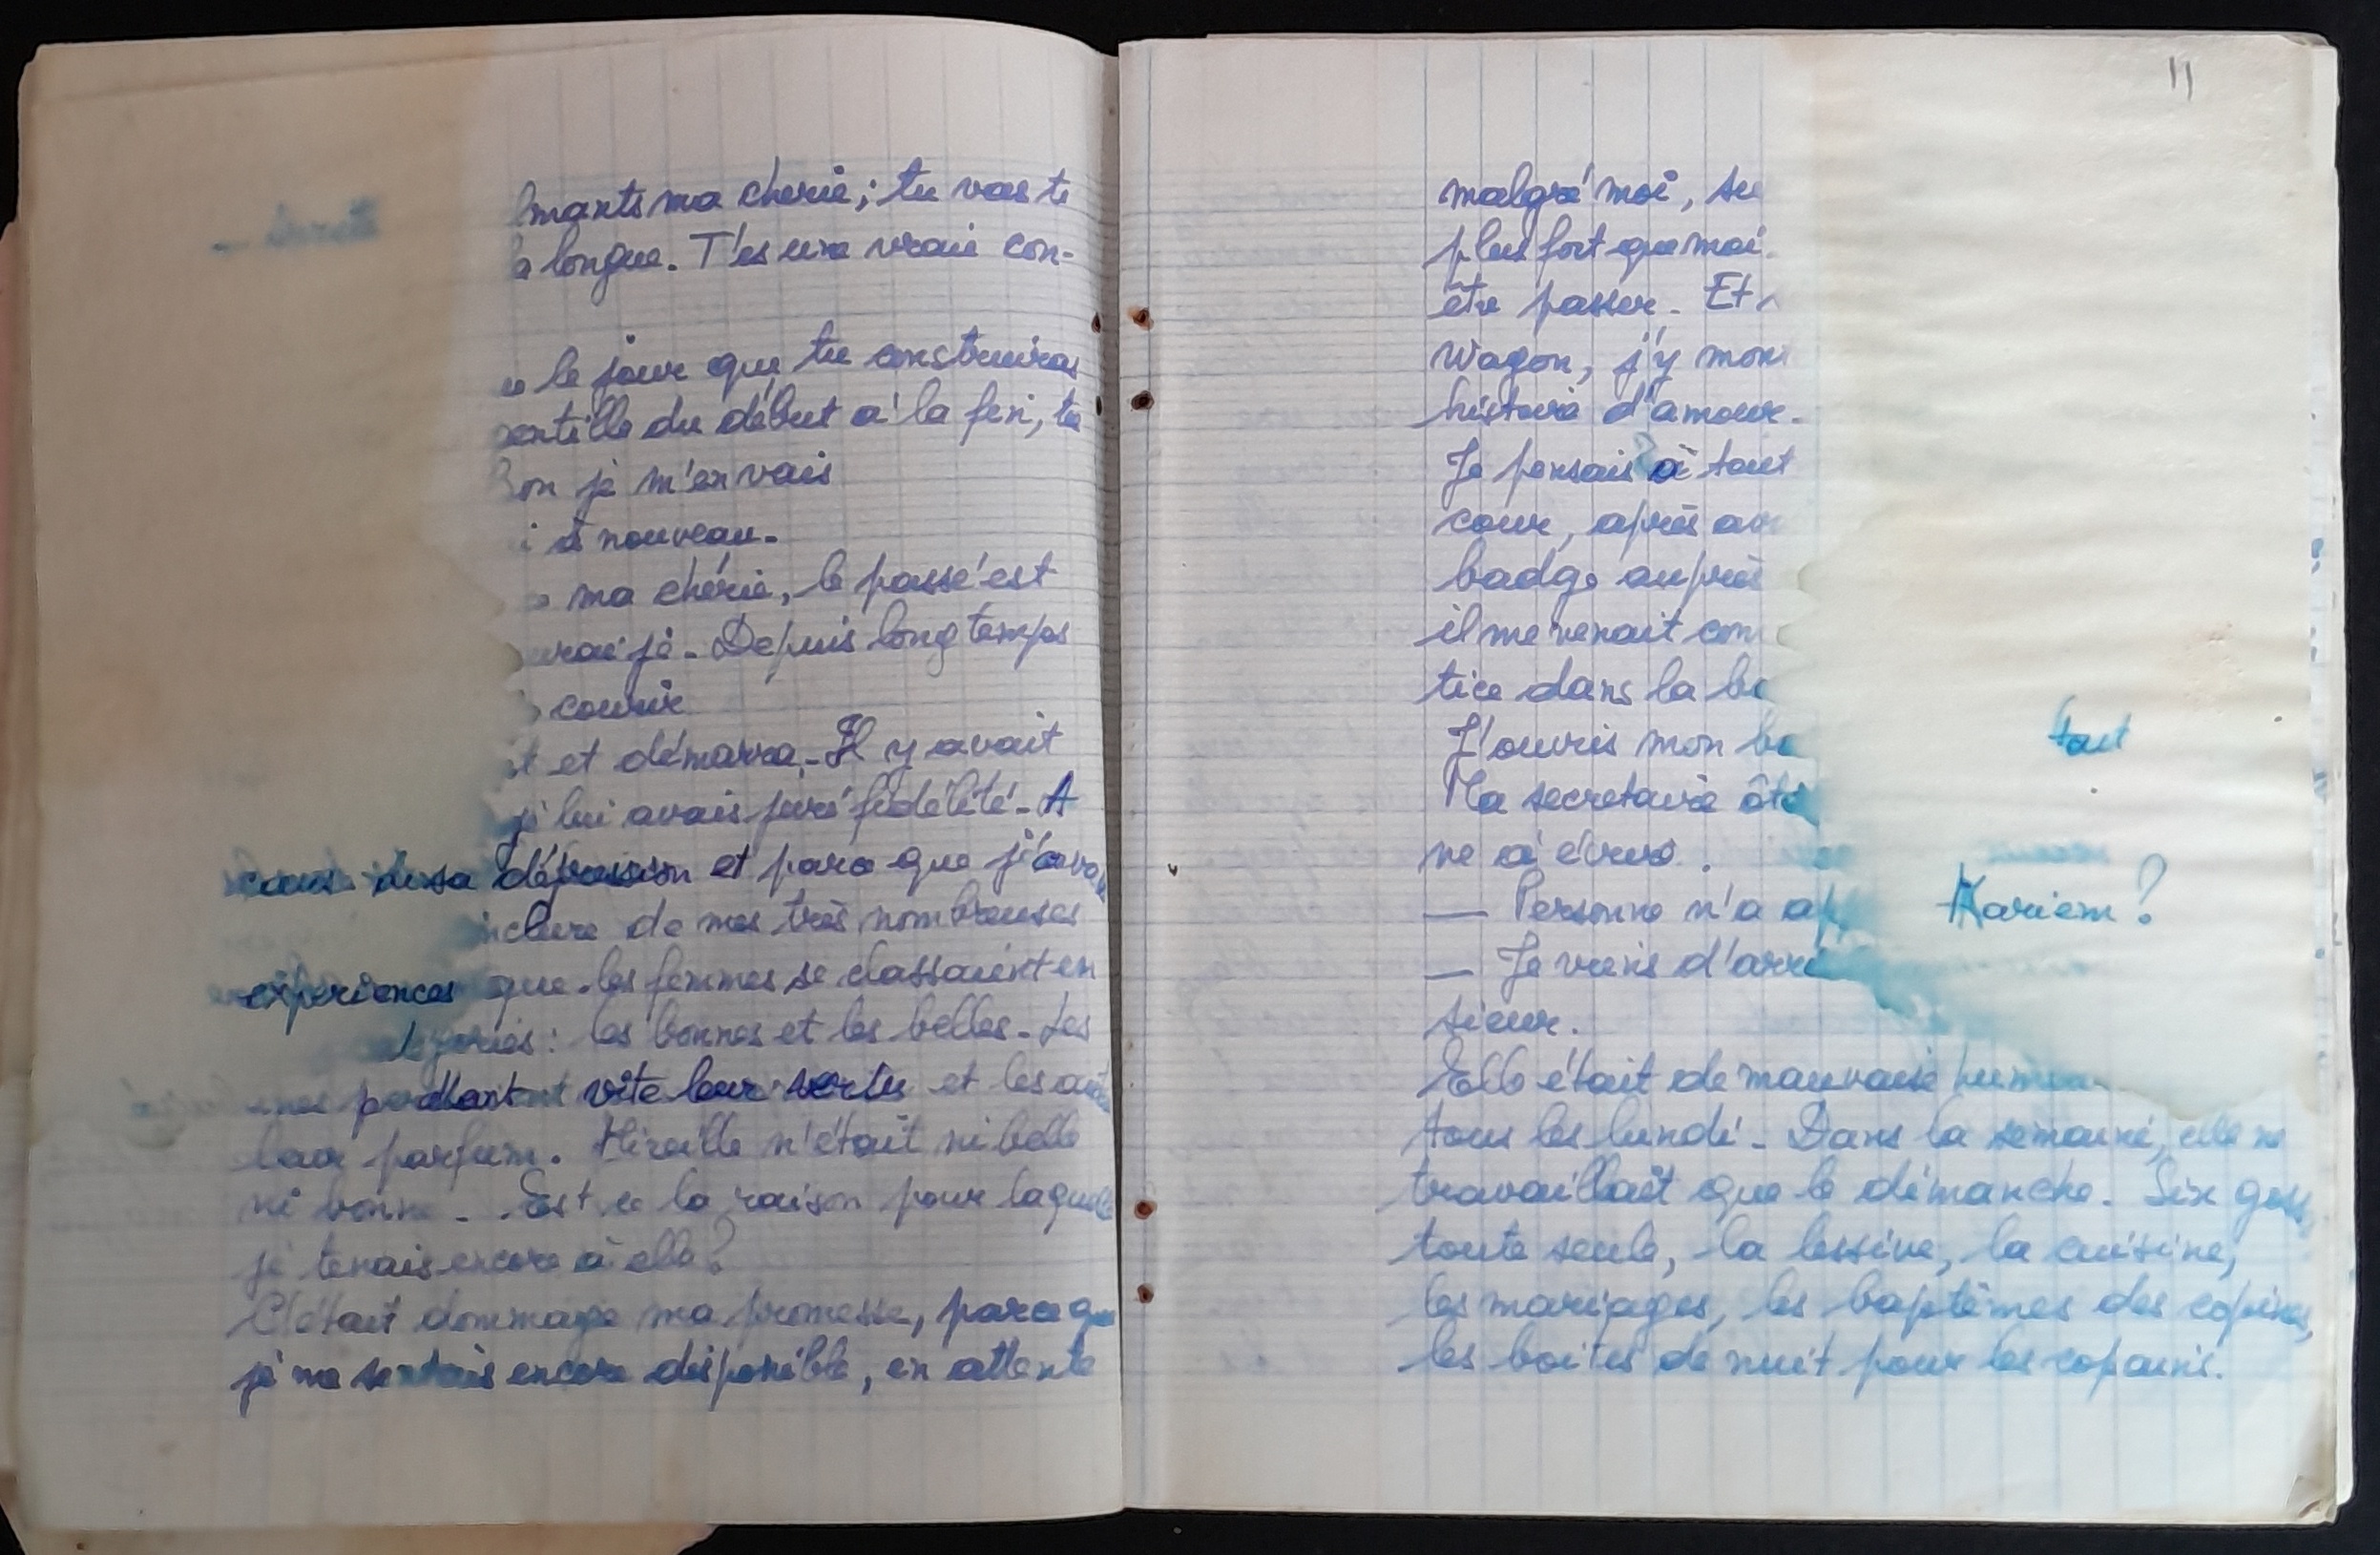 ma cherie; tu vas te
longue. T'es une vraie con-
le jour que tu construiras
du début à la fin, tu
je m'en vais
nouveau.
ma chérie, le passé est
Depuis longtemps
courir
et démarra. Il y avait
lui avais juré fidélité. A
de sa et parce que j'avais
de mes très nombreuses
expériences que les femmes se classaient en
: les bonnes et les belles. Les
vite leur vertu et les
leur parfum. Mireille n'était ni belle
ni bonne. Est ce la raison pour laquelle
je tenais encore à elle?
C'était dommage ma promesse, parce que
je me sentais encore disponible, en attente
11
malgré moi, su
plus fort que moi.
être passer. Et
Wagon, j'y mon
histoire d'amour.
Je pensais à tout
cour, après av
badge auprès
il me venait com
tice dans la bo
J'ouvris mon bu tout
Ma secretaire ôta
ne à écrire.
— Personne n'a ap Mariem?
— Je viens d'arri
sieur.
Elle était de mauvaise humeur
tous les lundi. Dans la semaine, elle ne
travaillait que le dimanche. Six goss
toute seule, la lessive, la cuisine,
les mariages, les baptêmes des copines,
les boites de nuit pour les copains.